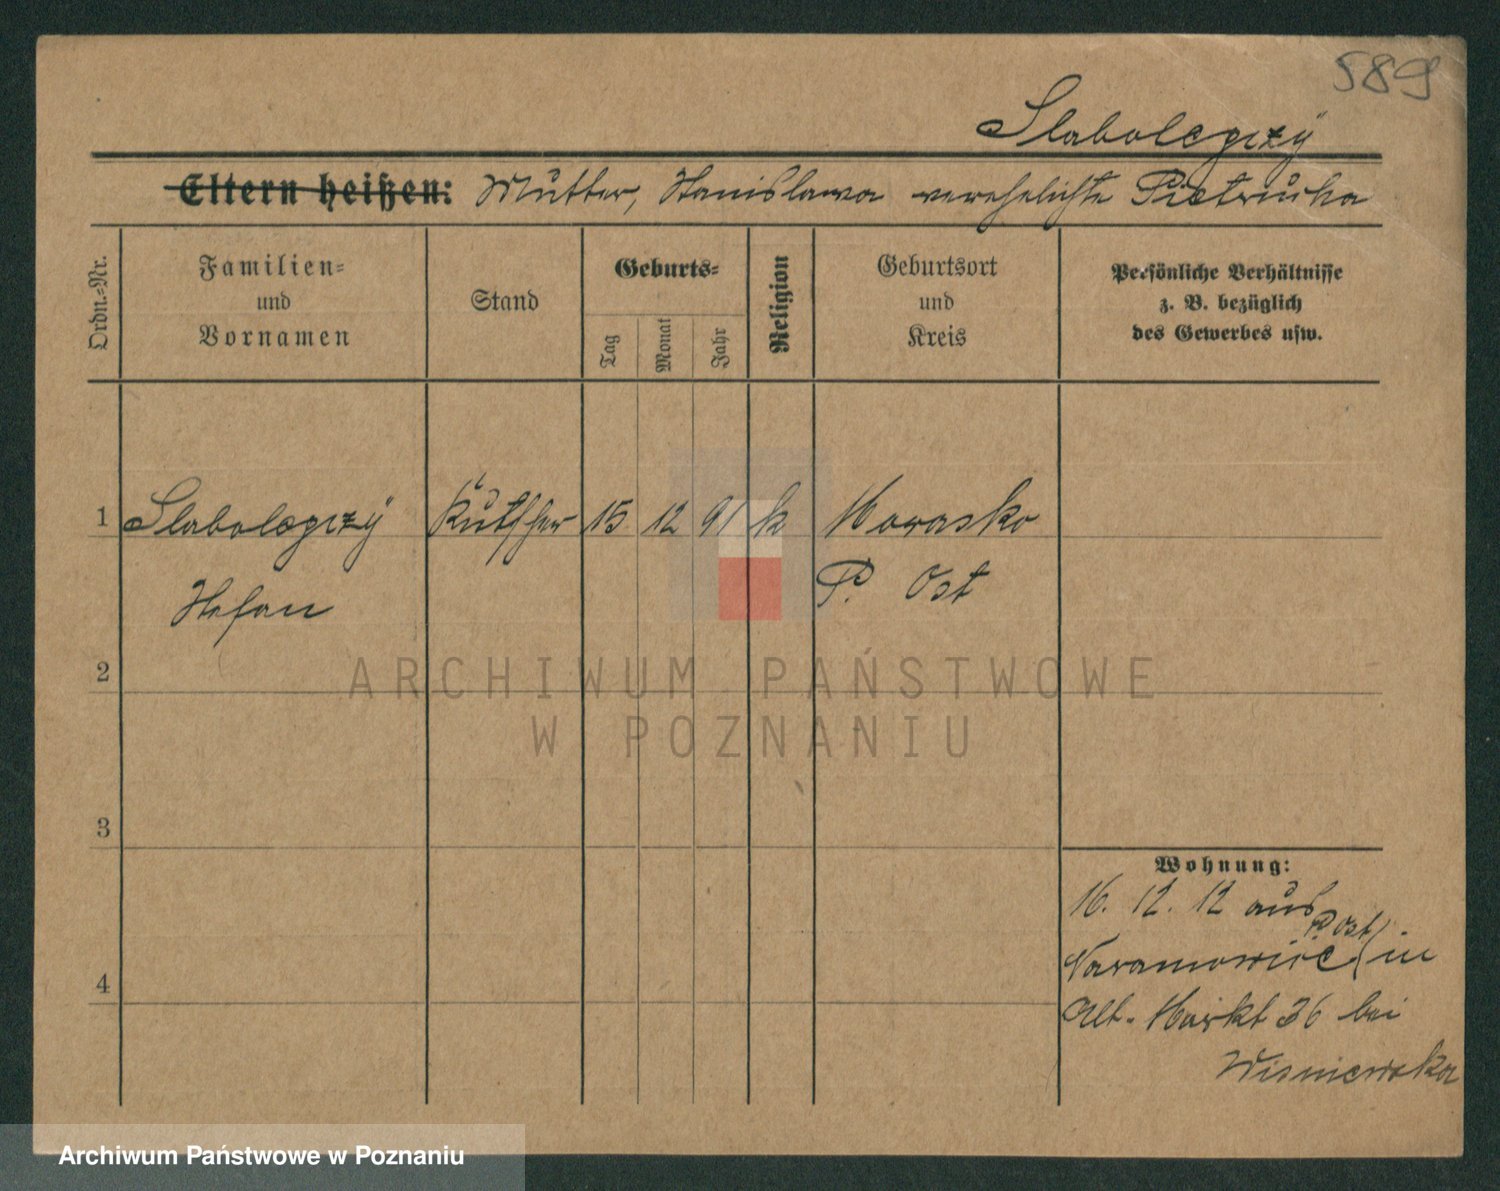 589
Slabolepszy
Eltern heißen: Mutter, Stanislawa verehelichte Pietrucha
Ordn.=Nr.
Familien=
und
Vornamen
Stand
Geburts=
Tag
Monat
Jahr
Religion
Geburtsort
und
Kreis
Persönliche Verhältnisse
z. B. bezüglich
des Gewerbes usw.
1 Slabolepszy Kutscher 15 12 91 k Morasko
Stefan P. Ost
2
ARCHIWUM PAŃSTWOWE
W POZNANIU
3
Wohnung:
16. 12. 12 aus
P. Ost
Naramowice in
4
Alt. Markt 36 bei
Wisniewska
Archiwum Państwowe w Poznaniu